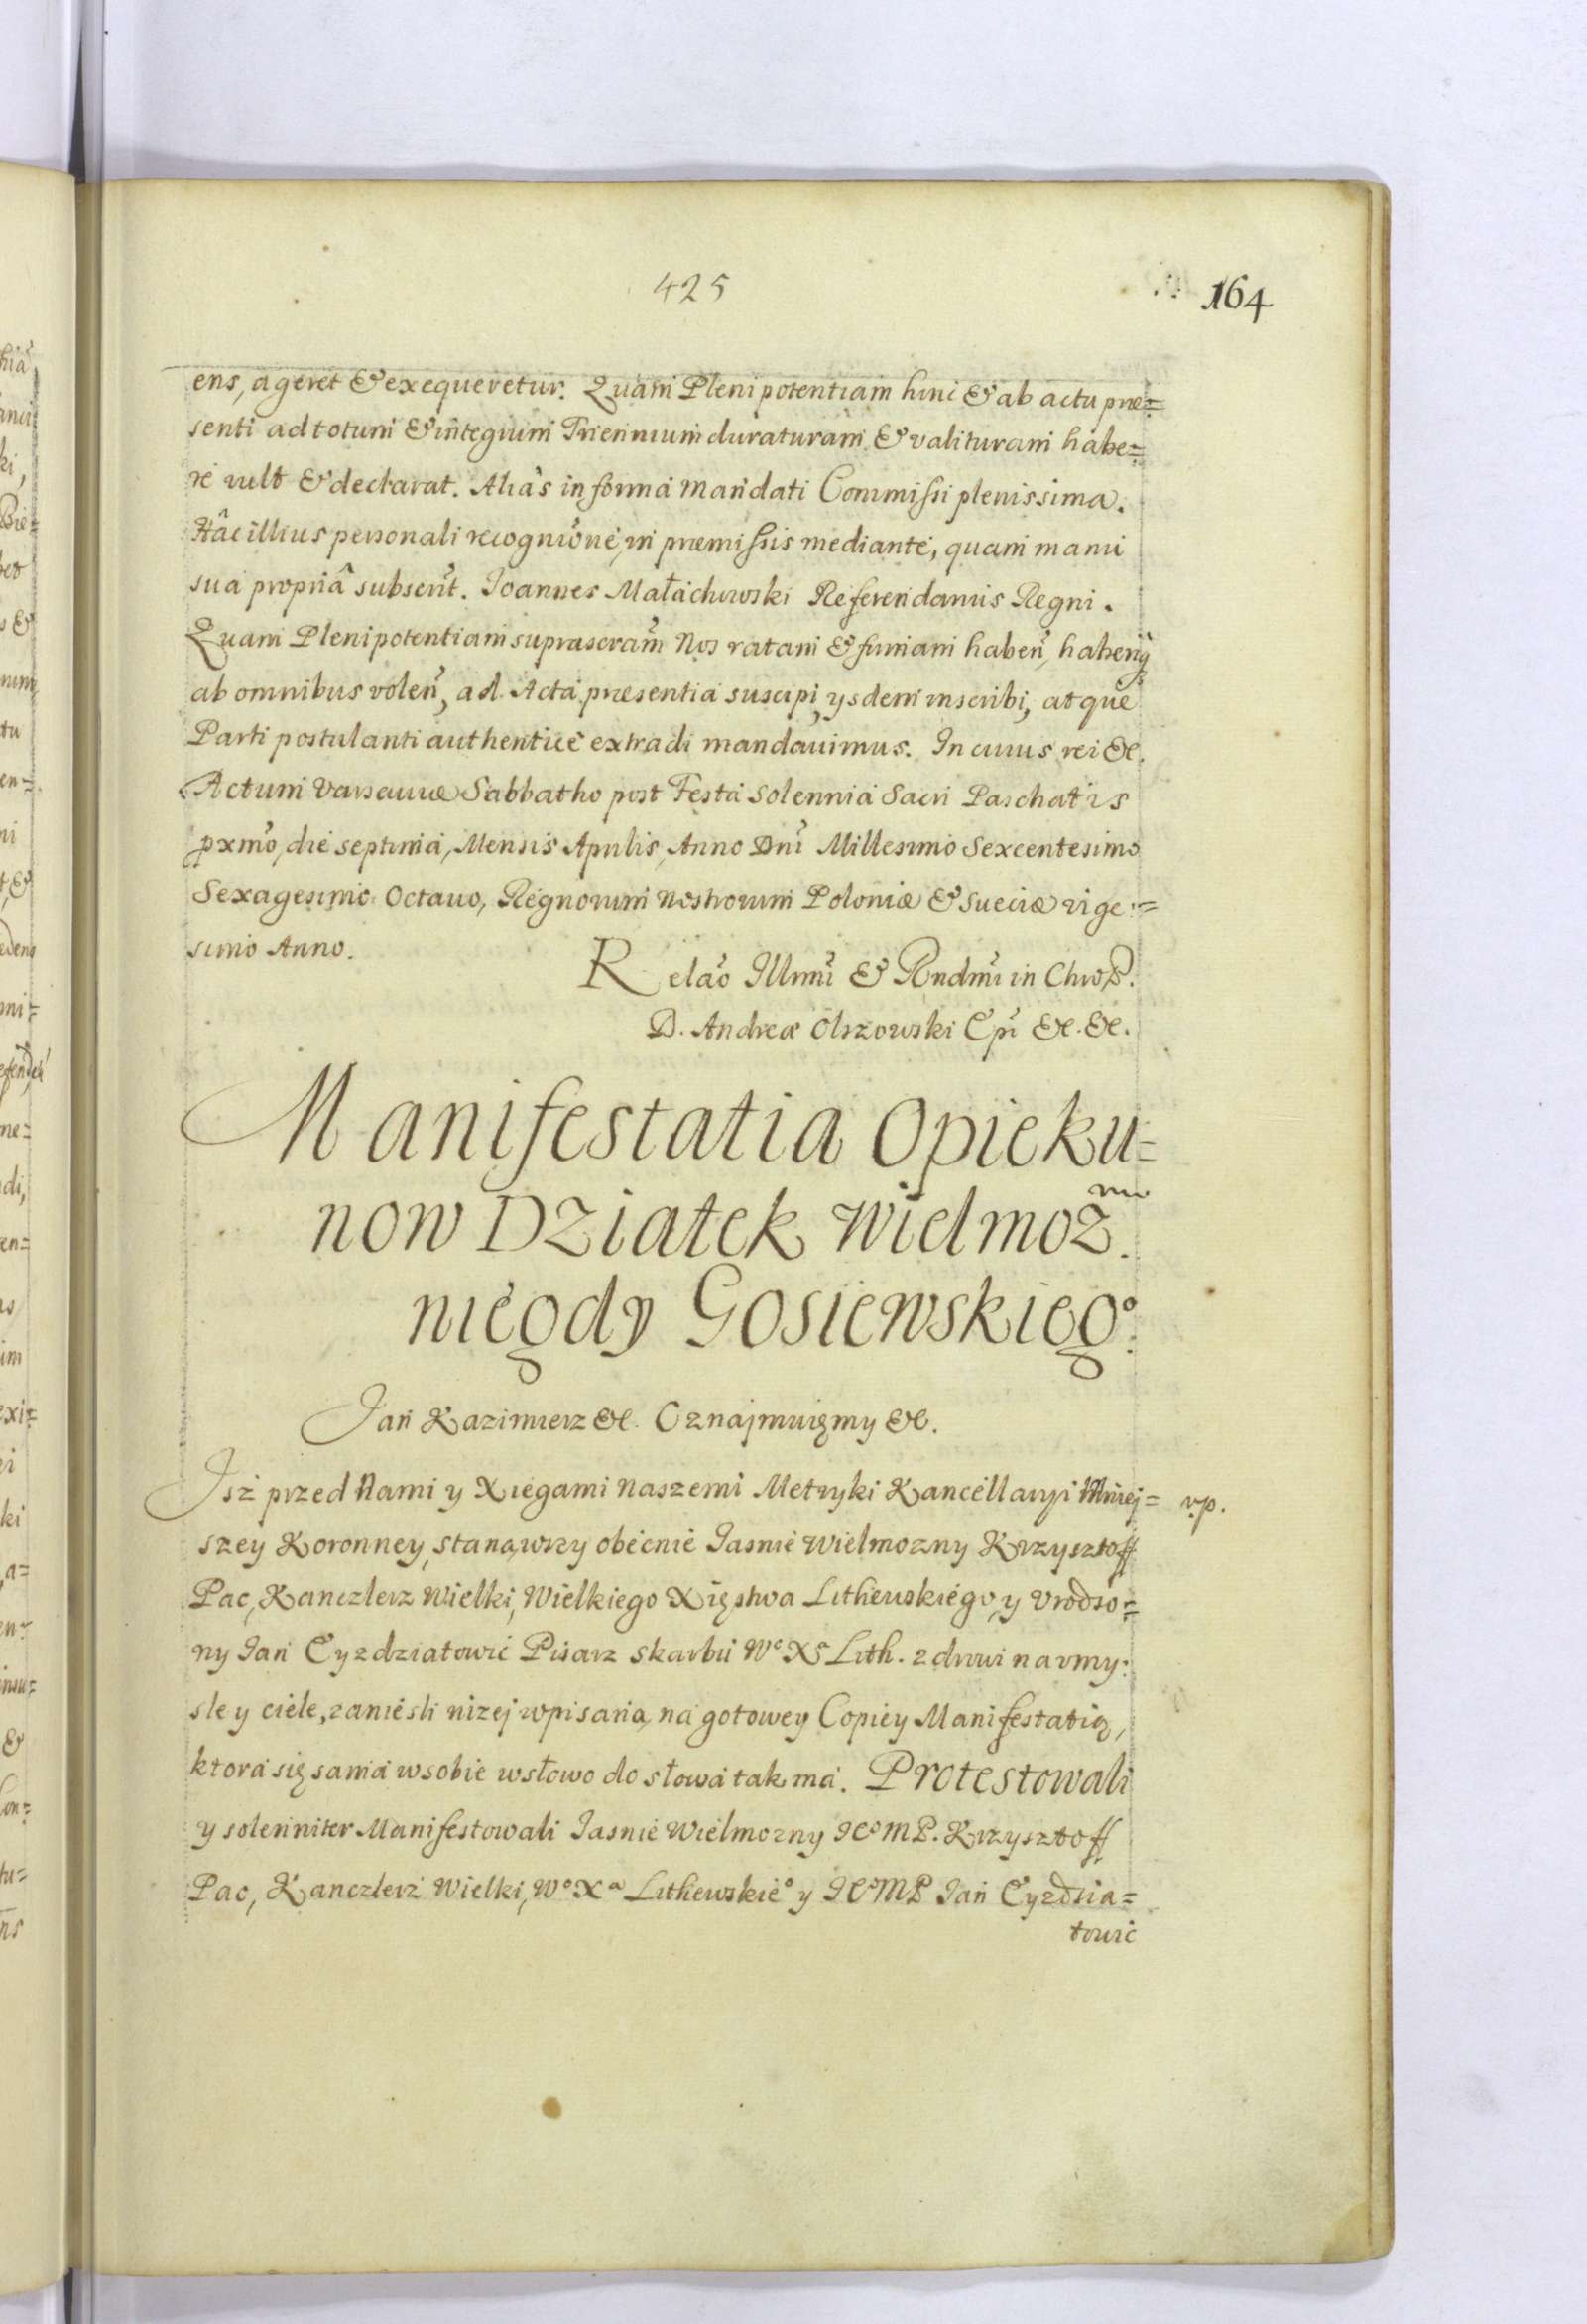 425
164
ens, ageret & exequeretur. Quam Plenipotentiam hinc & ab actu præ=
senti ad totum & integrum Triennium duraturam & valituram habe=
re vult & declarat. Aliàs in forma Mandati Commissi plenissima.
Hâc illius personali recognĩone, in præmissis mediante, quam manu
sua propriâ subscrit. Joannes Małachowski Referendarius Regni.
Quam Plenipotentiam suprascram Nos ratam & firmam haben, haberiq
ab omnibus volen, ad Acta præsentia suscipi, ysdem inscribi, atque
Parti postulanti authenticè extradi mandauimus. In cuius rei &c.
Actum Varsauiæ Sabbatho post Festa Solennia Sacri Paschatis
pxmo, die septima, Mensis Aprilis, Anno Dni Millesimo Sexcentesimo
Sexagesimo Octauo, Regnorum Nostrorum Poloniæ & Sueciæ vige=
simo Anno.
Relao Illmi & Rndmi in Chro P.
D. Andreæ Olszowski Epi &c. &c.
Manifestatia Opieku=
now Dziatek Wielmoż.
niegdy Gosiewskieg°.
Jan Kazimierz &c. Oznajmuięmy &c.
Isz przed Nami y Xięgami Naszemi Metryki Kancellaryi Mniej= vp.
szey Koronney, stanąwszy obecnie Jasnie Wielmozny Krzysztoff
Pac, Kanclerz Wielki, Wielkiego Xięstwa Lithewskiego, y Vrodzo=
ny Jan Cyzdziatowic Pisarz Skarbu W° Xa Lith. zdrowi na vmy=
sle y ciele, zanieśli niżej wpisaną, na gotowey Copiey Manifestatię,
ktora się sama w sobie w słowo do słowa tak ma. Protestowali
y solenniter Manifestowali Jasnie Wielmozny JEoMP. Krzysztoff
Pac, Kanclerz Wielki, W° Xa Lithewskie° y JEoMP Jan Cyzdzia=
towic